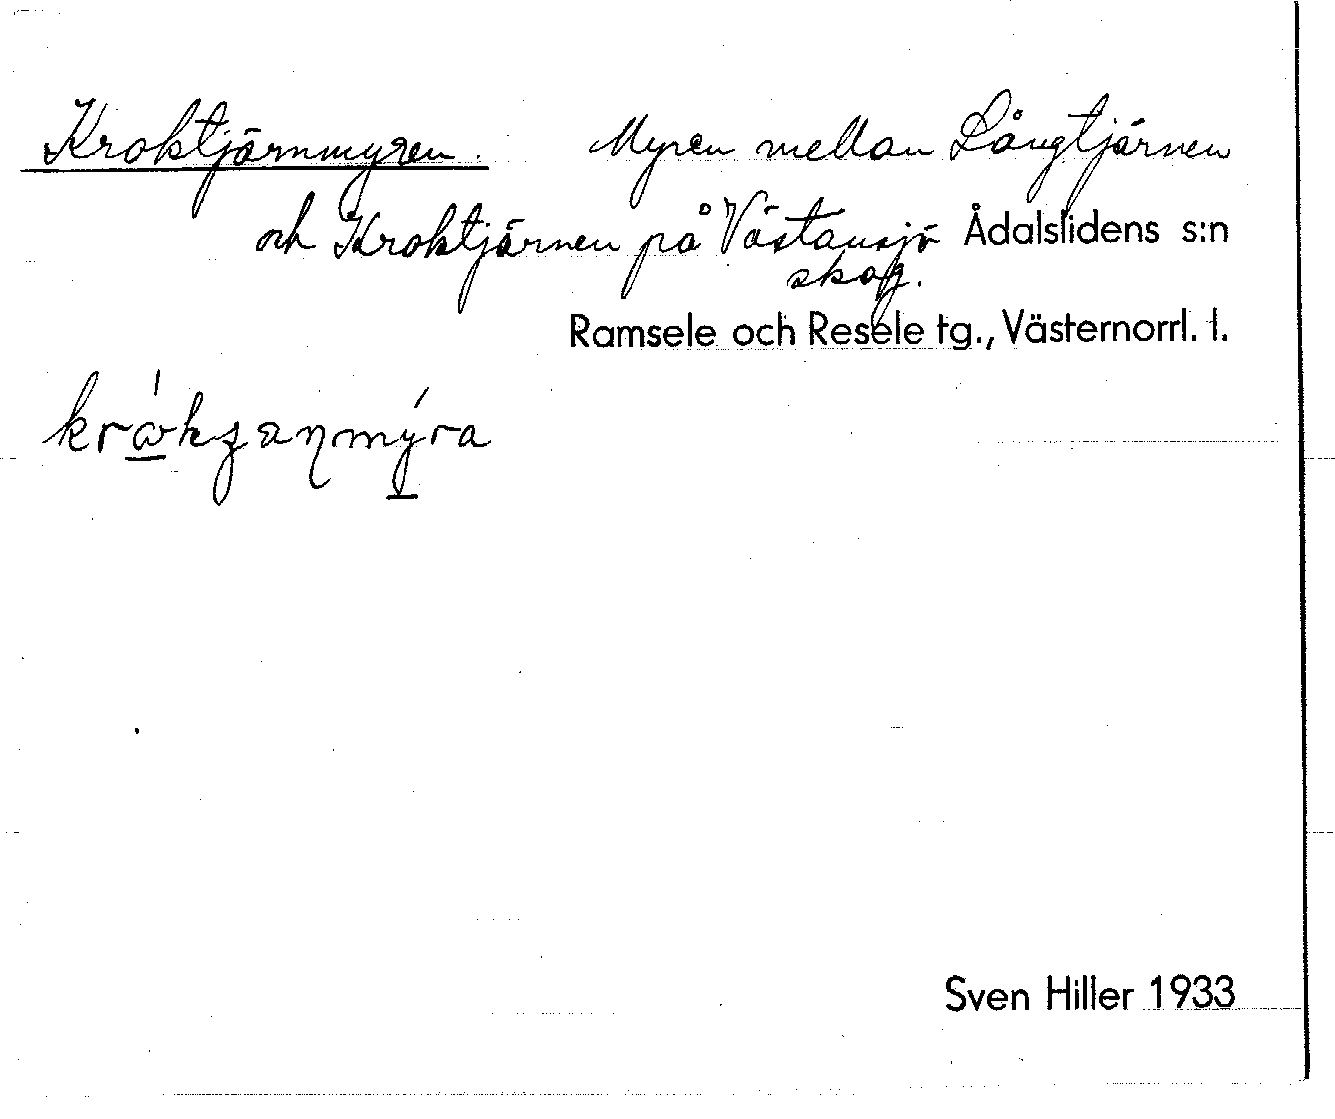 Kroktjärnmyren. Myren mellan Långtjärnen
och Kroktjärnen på Västansjö Ådalslidens s:n
skog.
Ramsele och Resele tg., Västernorrl. l.
Sven Hiller 1933